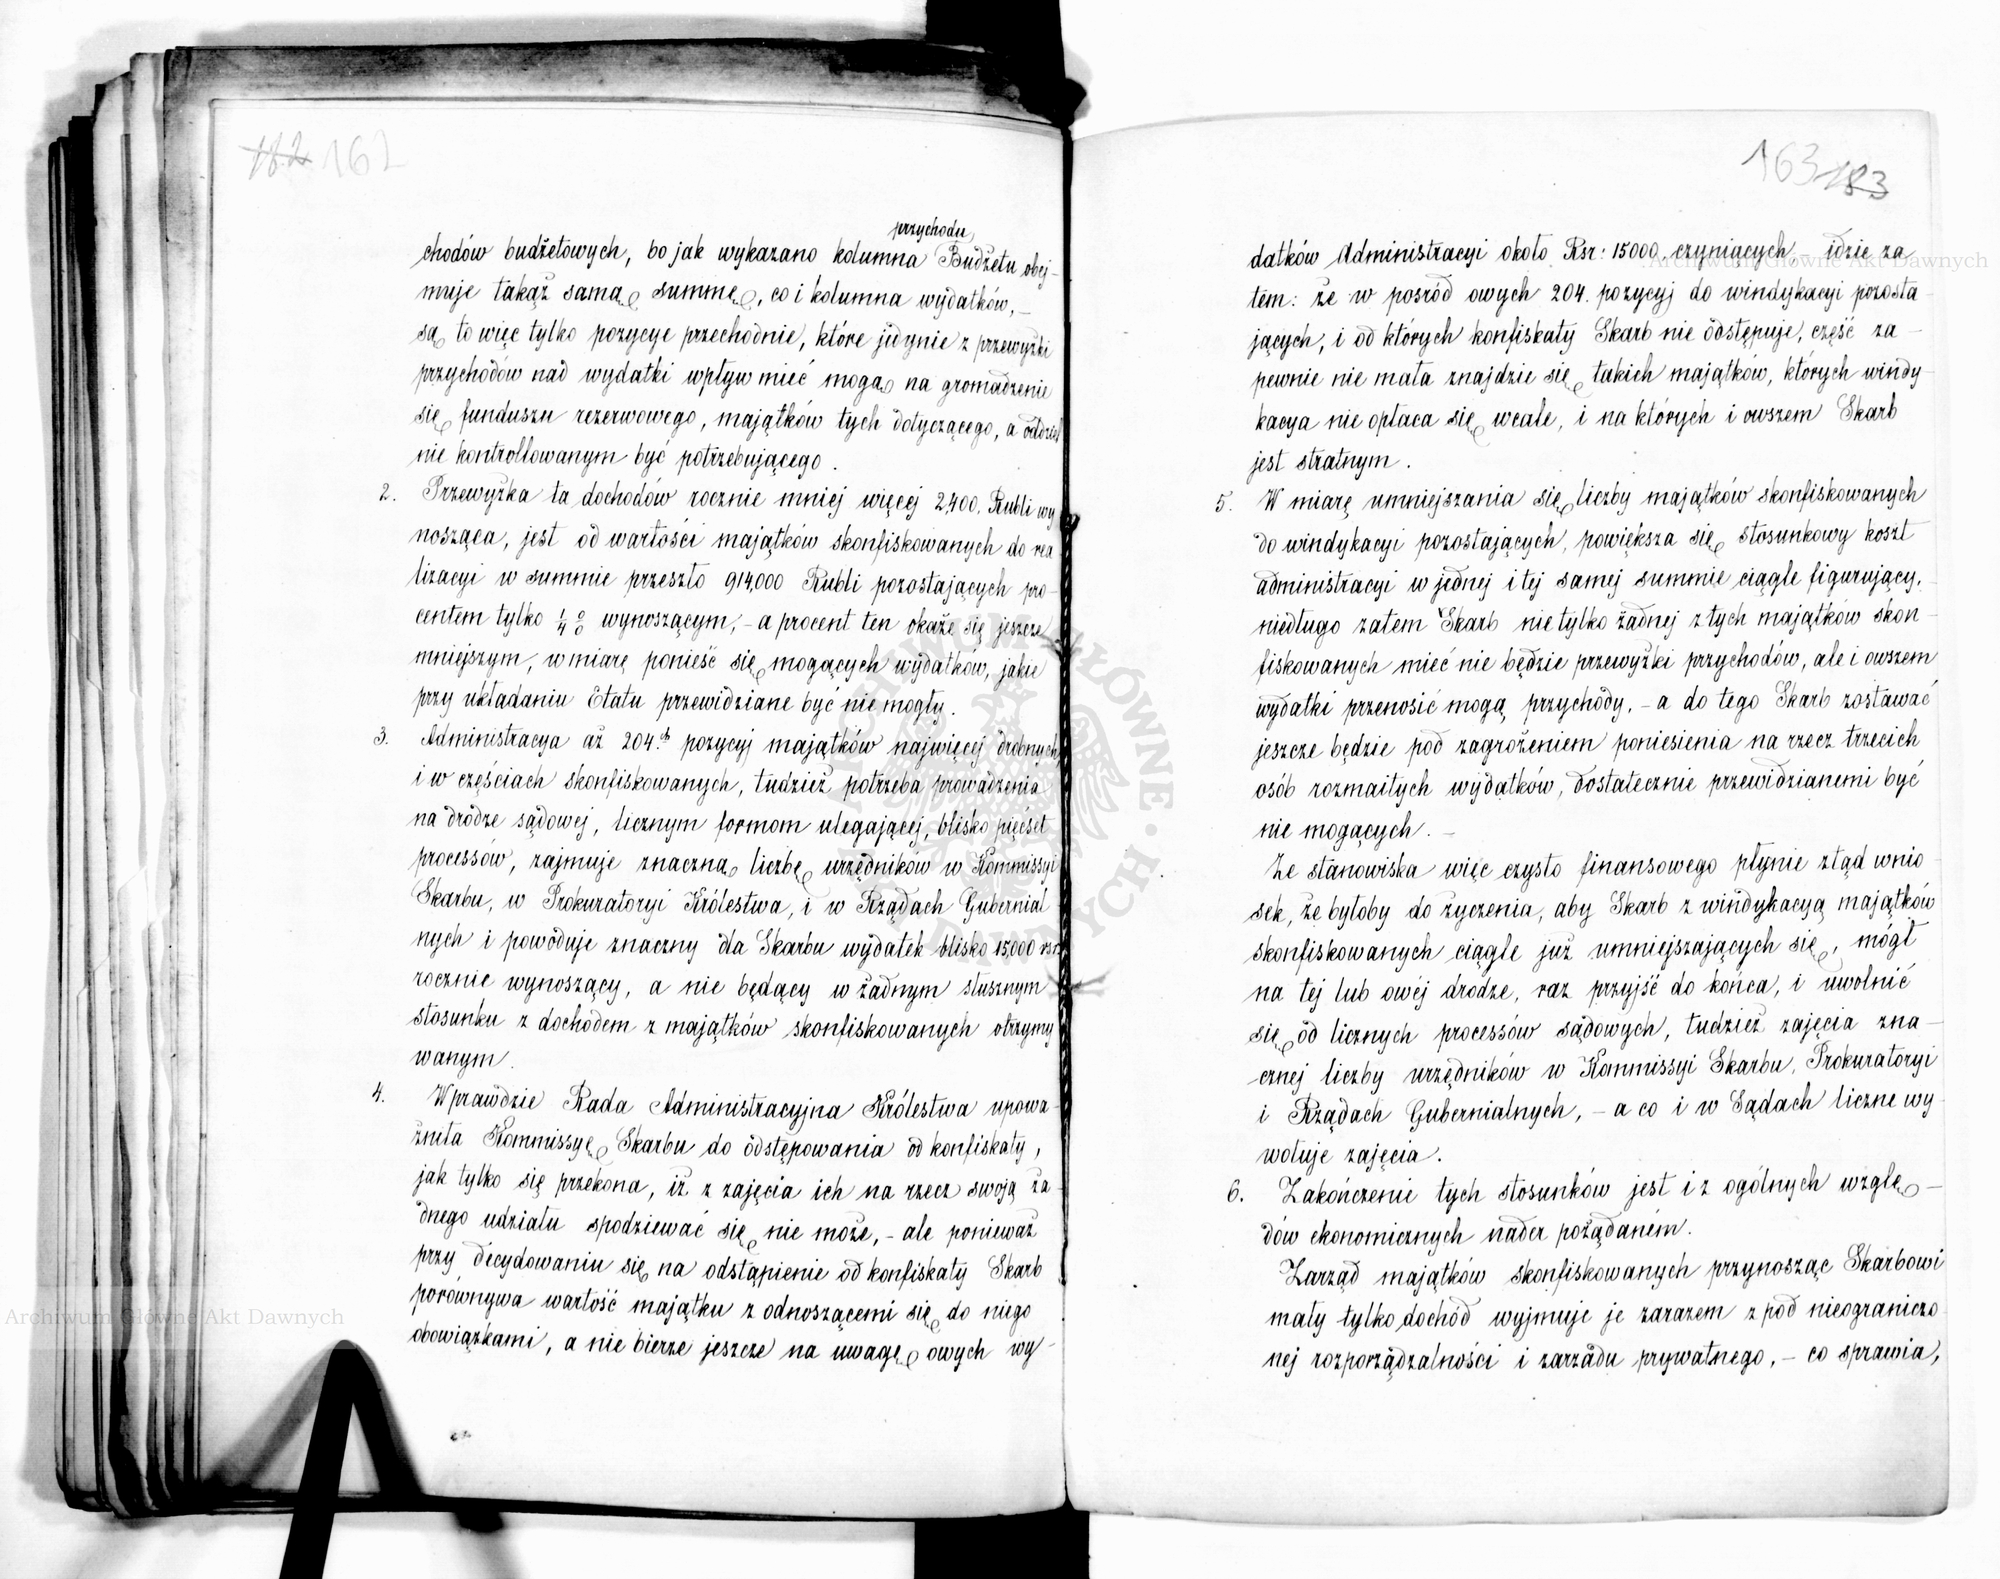 182 162
przychodu
chodów budżetowych, bo jak wykazano kolumna Budżetu obej-
muje takąż samą summę, co i kolumna wydatków, -
są to więc tylko pozycye przechodnie, które jedynie z przewyżki
przychodów nad wydatki wpływ mieć mogą na gromadzenie
się funduszu rezerwowego, majątków tych dotyczącego, a oddziel
nie kontrollowanym być potrzebującego.
2. Przewyżka ta dochodów rocznie mniej więcej 2,400. Rubli wy
nosząca, jest od wartości majątków skonfiskowanych do rea
lizacyi w summie przeszło 914,000 Rubli pozostających pro-
centem tylko 1/4 % wynoszącym, - a procent ten okaże się jeszcze
mniejszym, w miarę ponieść się mogących wydatków, jakie
przy układaniu Etatu przewidziane być nie mogły.
3. Administracya aż 204.ch pozycyj majątków najwięcej drobnych,
i w częściach skonfiskowanych, tudzież potrzeba prowadzenia
na drodze sądowej, licznym formom ulegającej, blisko pięćset
processów, zajmuje znaczną liczbę urzędników w Kommissyi
Skarbu, w Prokuratoryi Królestwa, i w Rządach Gubernial
nych i powoduje znaczny dla Skarbu wydatek blisko 15,000 rsr.
rocznie wynoszący, a nie będący w żadnym słusznym
stosunku z dochodem z majątków skonfiskowanych otrzymy
wanym.
4. Wprawdzie Rada Administracyjna Królestwa upowa-
żniła Kommissyę Skarbu do odstępowania od konfiskaty,
jak tylko się przekona, iż z zajęcia ich na rzecz swoją ża-
dnego udziału spodziewać się nie może, - ale ponieważ
przy decydowaniu się na odstąpienie od konfiskaty Skarb
porównywa wartość majątku z odnoszącemi się do niego
obowiązkami, a nie bierze jeszcze na uwagę owych wy-
163 183
datków Administracyi około Rsr: 15000, czyniących, - idzie za
tem: że w pośród owych 204. pozycyj do windykacyi pozosta-
jących, i od których konfiskaty Skarb nie odstępuje, część za-
pewnie nie mała znajdzie się takich majątków, których windy-
kacya nie opłaca się wcale, i na których i owszem Skarb
jest stratnym.
5. W miarę umniejszania się liczby majątków skonfiskowanych
do windykacyi pozostających, powiększa się stosunkowy koszt
administracyi w jednej i tej samej summie ciągle figurujący,
niedługo zatem Skarb nie tylko żadnej z tych majątków skon-
fiskowanych mieć nie będzie przewyżki przychodów, ale i owszem
wydatki przenosić mogą przychody, - a do tego Skarb zostawać
jeszcze będzie pod zagrożeniem poniesienia na rzecz trzecich
osób rozmaitych wydatków, dostatecznie przewidzianemi być
nie mogących. -
Ze stanowiska więc czysto finansowego płynie ztąd wnio-
sek, że byłoby do życzenia, aby Skarb z windykacyą majątków
skonfiskowanych ciągle już umniejszających się, mógł
na tej lub owéj drodze, raz przyjść do końca, i uwolnić
się od licznych processów sądowych, tudzież zajęcia zna-
cznej liczby urzędników w Kommissyi Skarbu, Prokuratoryi
i Rządach Gubernialnych, - a co i w Sądach liczne wy-
wołuje zajęcia.
6. Zakończenie tych stosunków jest i z ogólnych wzglę-
dów ekonomicznych nader pożądaném.
Zarząd majątków skonfiskowanych przynosząc Skarbowi
mały tylko dochód wyjmuje je zarazem z pod nieograniczo-
nej rozporządzalności i zarządu prywatnego, - co sprawia,
Archiwum Główne Akt Dawnych
Archiwum Główne Akt Dawnych
ARCHIWUM GŁÓWNE AKT DAWNYCH